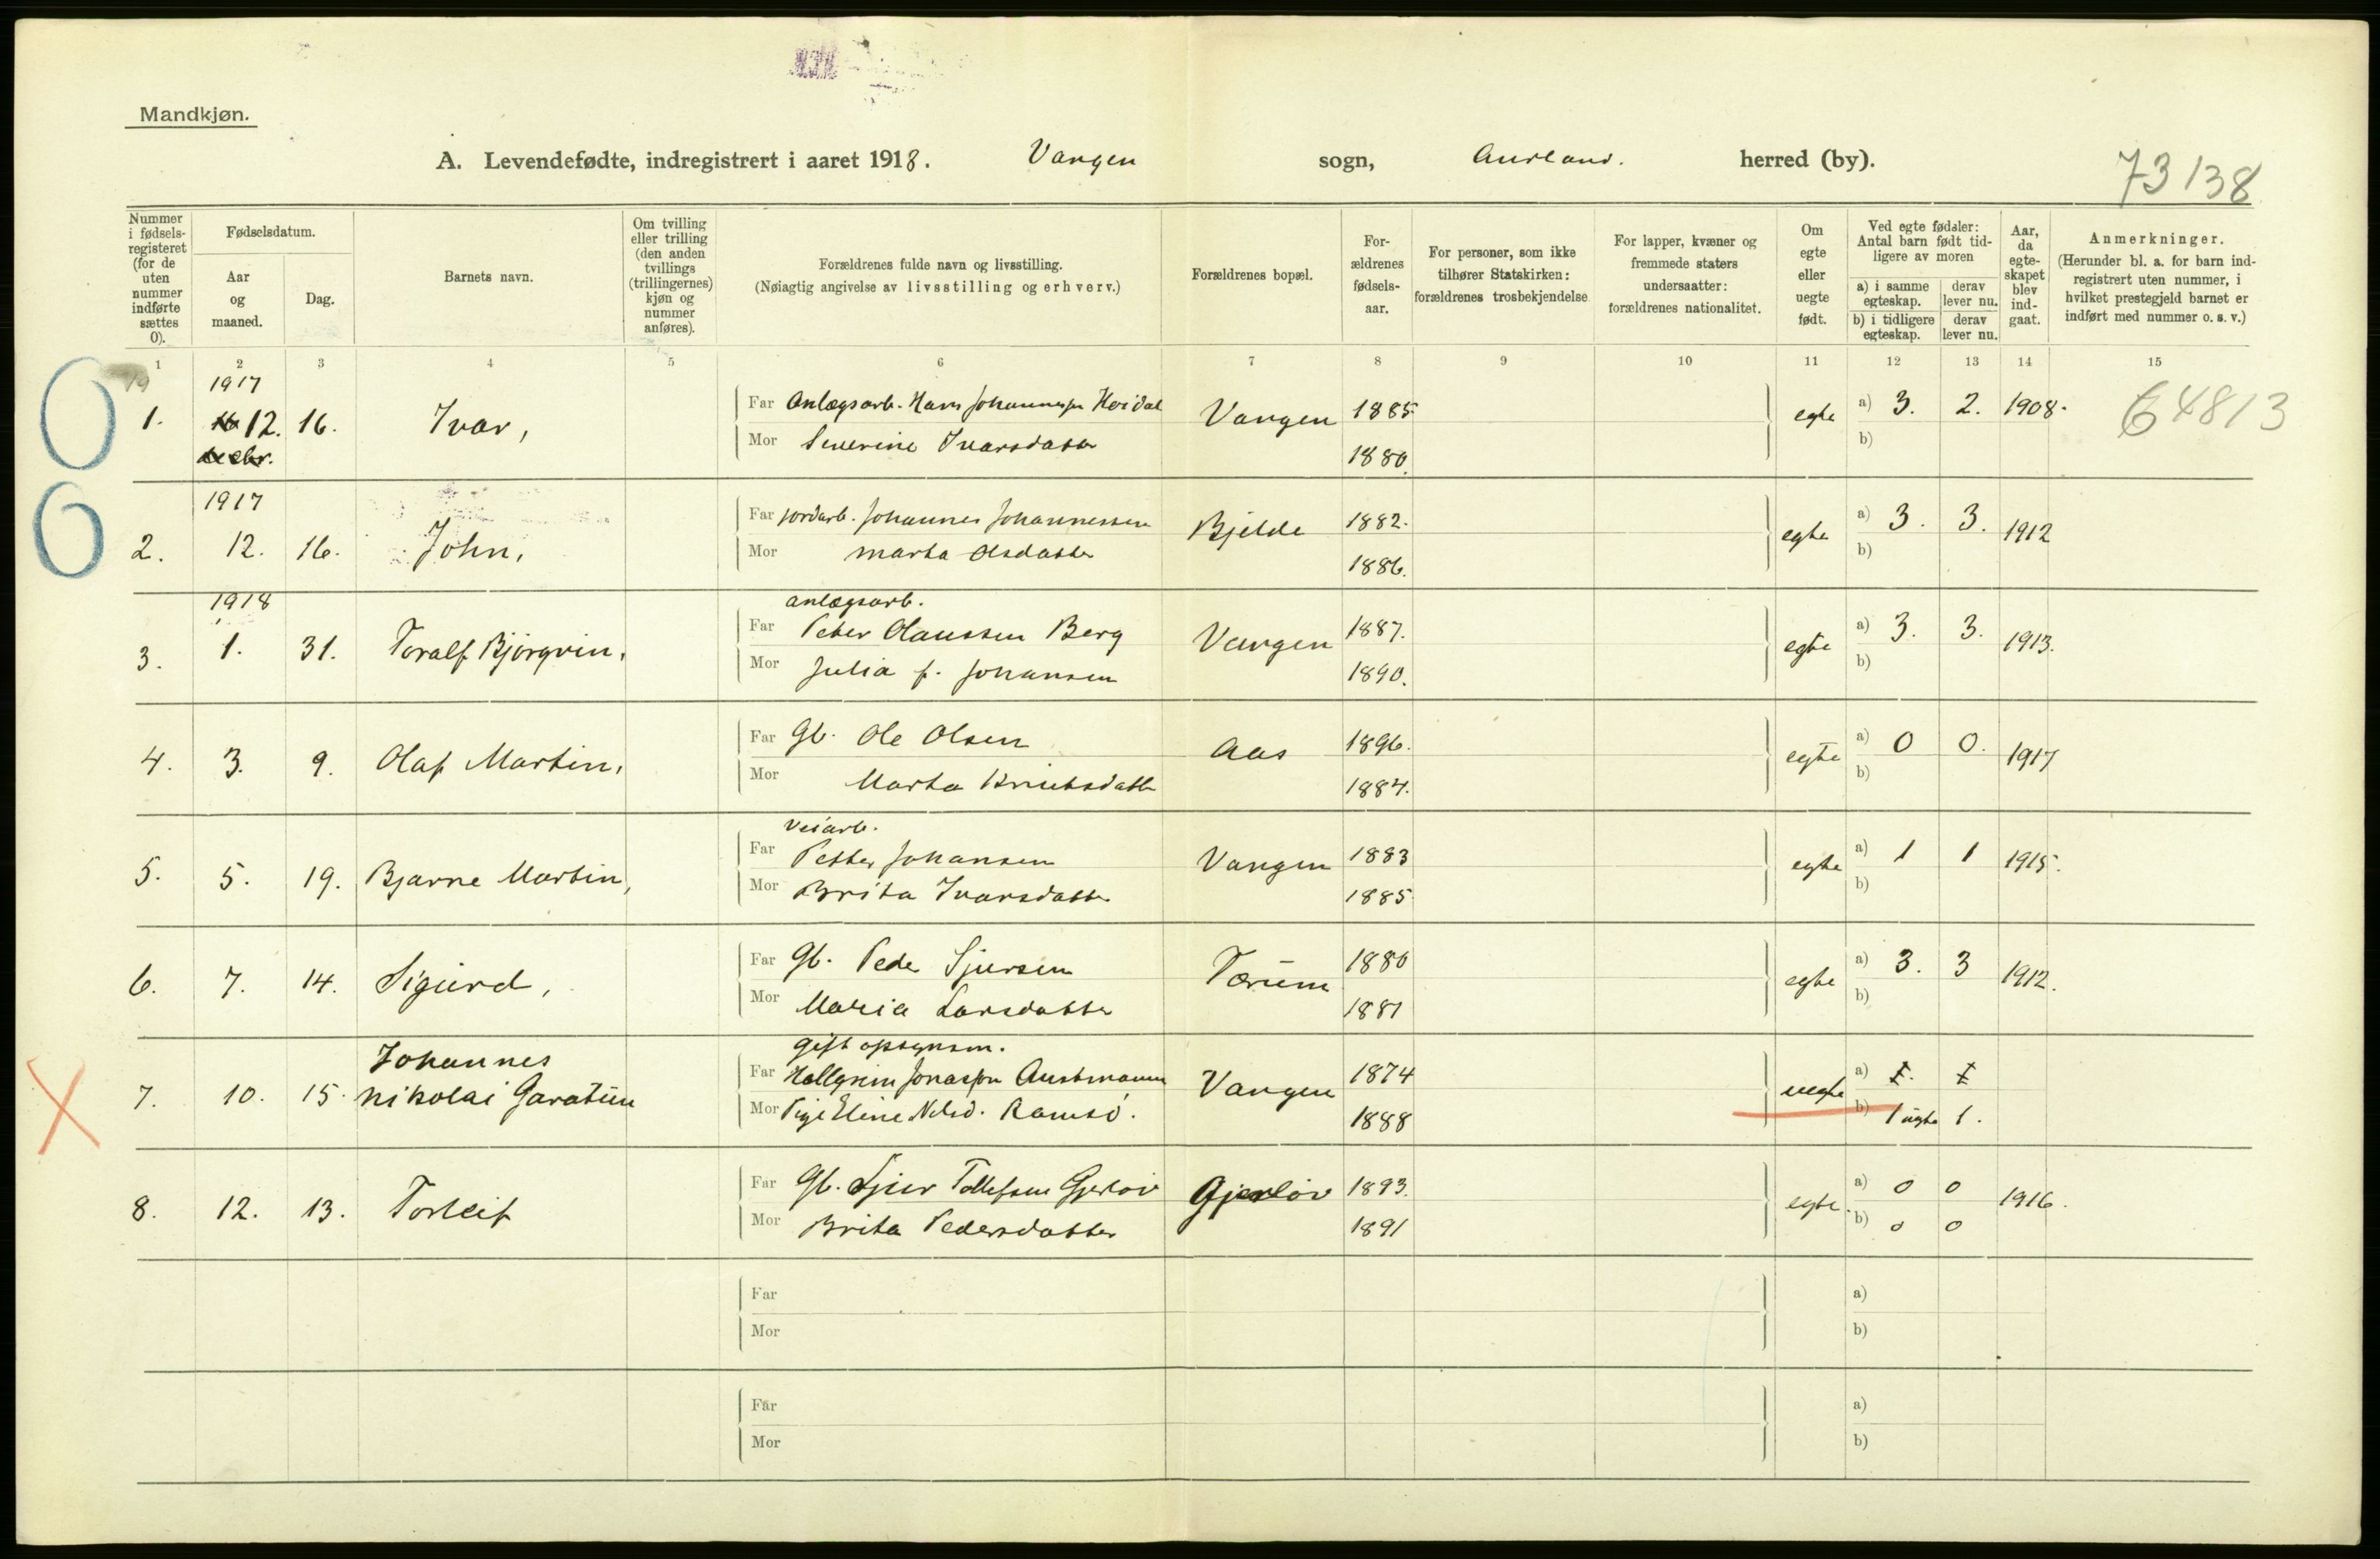 Mandkjøn.
A. Levendefødte, indregistrert i aaret 1918. Vangen sogn, Aurland. herred (by).
73138
Nummer i fødselsregisteret (for de uten nummer indførte sættes 0).
Fødselsdatum.
Aar og maaned.
Dag.
Barnets navn.
Om tvilling eller trilling (den anden tvillings (trillingernes) kjøn og nummer anføres).
Forældrenes fulde navn og livsstilling.
(Nøiagtig angivelse av livsstilling og erhverv.)
Forældrenes bopæl.
Forældrenes fødselsaar.
For personer, som ikke tilhører Statskirken: forældrenes trosbekjendelse
For lapper, kvæner og fremmede staters undersaatter: forældrenes nationalitet.
Om egte eller uegte født.
Ved egte fødsler: Antal barn født tidligere av moren
a) i samme egteskap. derav lever nu.
b) i tidligere egteskap. derav lever nu.
Aar, da egteskapet blev indgaat.
Anmerkninger.
(Herunder bl. a. for barn indregistrert uten nummer, i hvilket prestegjeld barnet er indført med nummer o. s. v.)
1 2 3 4 5 6 7 8 9 10 11 12 13 14 15
0
1917
1. 12. 16. Ivar, Far Anlægsarb. Hans Johannesen Vangen 1885 egte a) 3. 2. 1908. 64813
decbr. Mor Severine Ivarsdatter 1880. b)
0
1917
2. 12. 16. John, Far jordarb. Johannes Johannessen Bjelde 1882. egte a) 3. 3. 1912
Mor Marta Olsdatter 1886. b)
1918 anlægsarb.
3. 1. 31. Toralf Bjørgvin, Far Peter Olaussen Berg Vangen 1887. egte a) 3. 3. 1913.
Mor Julia f. Johansen 1890. b)
4. 3. 9. Olaf Martin, Far Gb. Ole Olsen Aas 1896. egte a) 0 0. 1917
Mor Marta Knutsdatter 1884. b)
veiarb.
5. 5. 19. Bjarne Martin, Far Petter Johansen Vangen 1883 egte a) 1 1 1915.
Mor Brita Ivarsdatter 1885 b)
6. 7. 14. Sigurd, Far Gb. Peder Sjursen Tærum 1880 egte a) 3. 3 1912.
Mor Maria Larsdatter 1881 b)
X
Johannes gift opsynsm.
7. 10. 15. Nikolai Garatun Far Hallgrim Jonassen Austmannen Vangen 1874 uegte a) 1. 1
Mor Pige Eline Nilsd. Ramsö. 1888 b) 1 uegte 1.
8. 12. 13. Torleif Far Gb. Sjur Tollefsen Gjerløv Gjerløv 1893. egte. a) 0 0 1916.
Mor Brita Pedersdatter 1891 b) 0 0
Far a)
Mor b)
Far a)
Mor b)